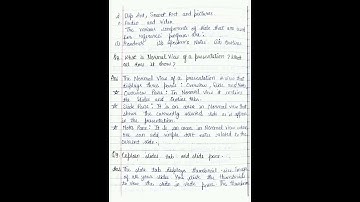 3) Clip Art, Smart Art and pictures
4) Audio and Video
The various components of slide that are used
for reference purpose are :
(i) Handout (ii) Speaker's Notes (iii) Outlines
Q8 What is Normal View of a presentation? What
all does it show?
Ans The Normal View of a presentation is view that
displays three panes : Overview, Slide and Note
★ Overview Pane : In Normal View it contains
the Slides and Outline tabs.
★ Slide Pane : It is an area in Normal view that
shows the currently selected slide as it appears
in the presentation.
★ Note Pane : It is an area in Normal view where
one can add simple text notes related to the
current slide.
Q9 Explain slides tab and slide pane.
Ans The slide tab displays thumbnail size images
of all your slides. You click the thumbnails
to view the slide in slide pane. The thumbnails